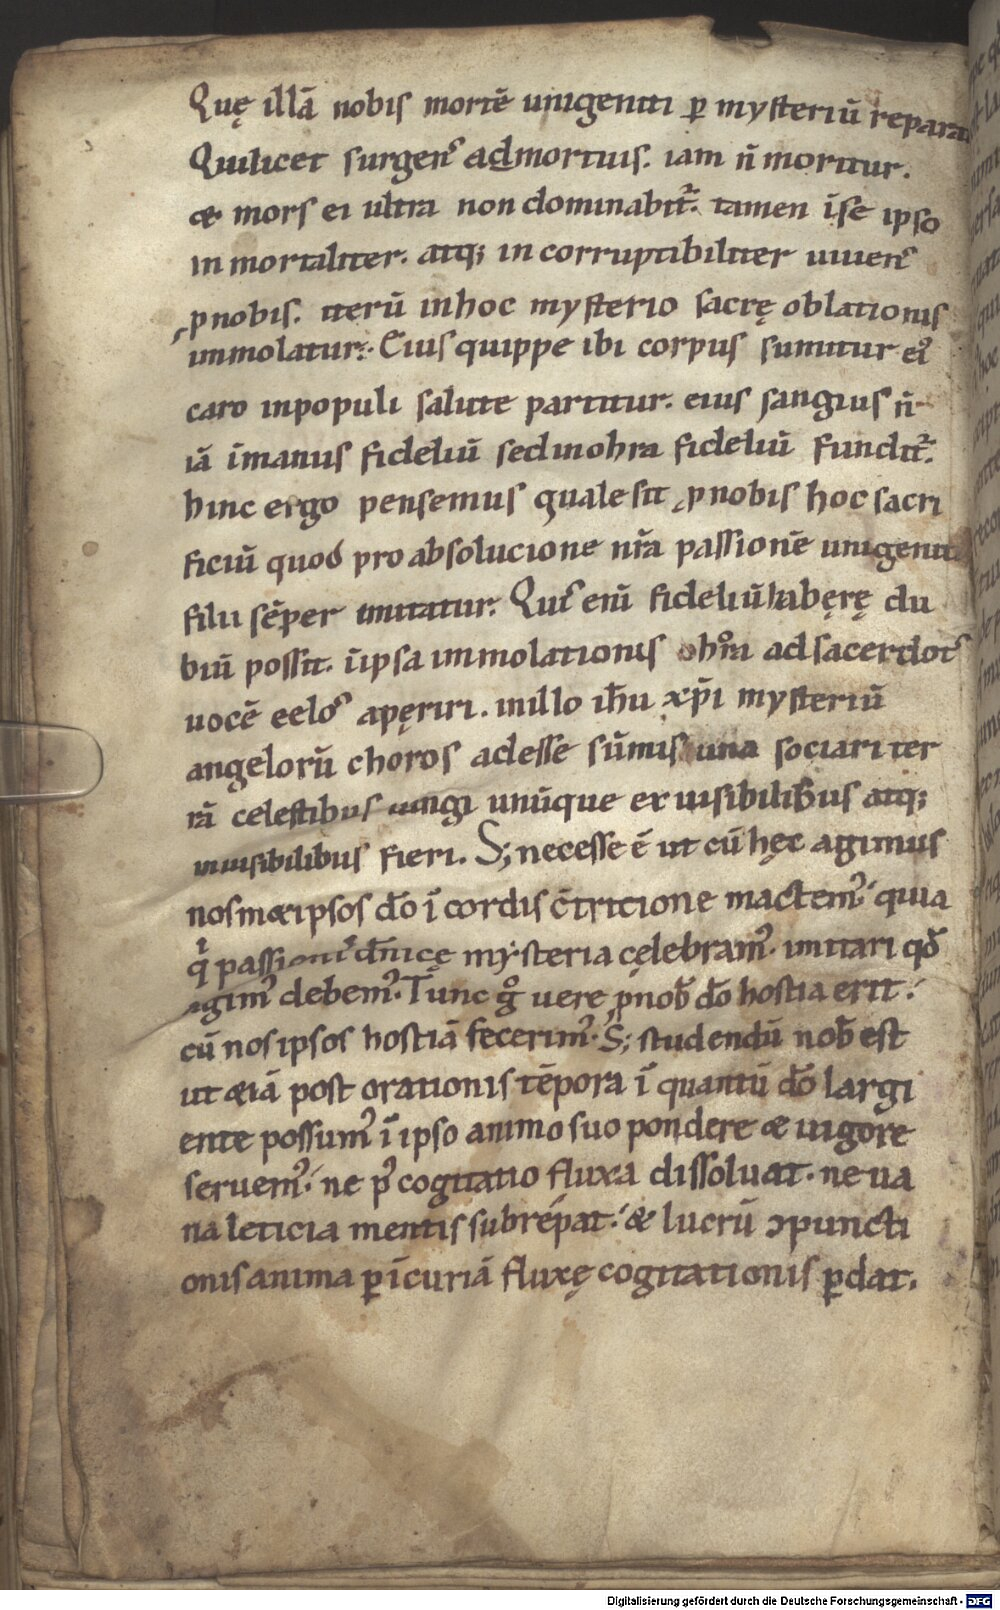 Quę illā nobis mortē unigeniti ꝑ mysteriū reparat
Qui licet surgens a dmortuis. iam n̄ moritur.
& mors ei ultra non dominabit᷑. tamen ī se ipso
in mortaliter. atq; in corruptibiliter uiuens
ꝓ nobis. iterū in hoc mysterio sacrę oblationis
immolatur. Eius quippe ibi corpus sumitur ei᷒
caro in populi salute partitur. eius sangius n̄
iā ī manus fideliū sed in ohra fideliū fundit᷑.
hinc ergo pensemus quale sit ꝓ nobis hoc sacri
ficiū quod pro absolucione nr̄a passionē unigeniti
filii sēper imitatur. Quis enī fideliū habęrę du
biū possit. ī ipsa immolationis ohͦra ad sacerdotis
uocē celos apęriri. in illo ih̄u xp̄i mysteriū
angelorū choros adesse sūmis una sociari ter
rā celestibus iungi unūque ex uisibilibus atq;
inuisibilibus fieri. S; necesse ē ut cū hęc agimus
nosm& ipsos dō ī cordis c̄tricione mactem᷒. quia
qͥ passionis dn̄icę mysteria cęlebram᷒. imitari qd̄
agim᷒ debem᷒. Tunc gͦ uere ꝓ nob̄ dō hostia erit.
cū nos ipsos hostiā fecerim᷒. S; studendū nob̄ est
ut &iā post orationis tēpora ī quantū dō largi
ente possum᷒ ī ipso animo suo pondere & uigore
seruem᷒. ne p᷒ cogitatio fluxa dissoluat. ne ua
na leticia mentis subrepat. & lucrū ɔpuncti
onis anima ꝑ īcuriā fluxę cogitationis ꝑdat.
Digitalisierung gefördert durch die Deutsche Forschungsgemeinschaft - DFG